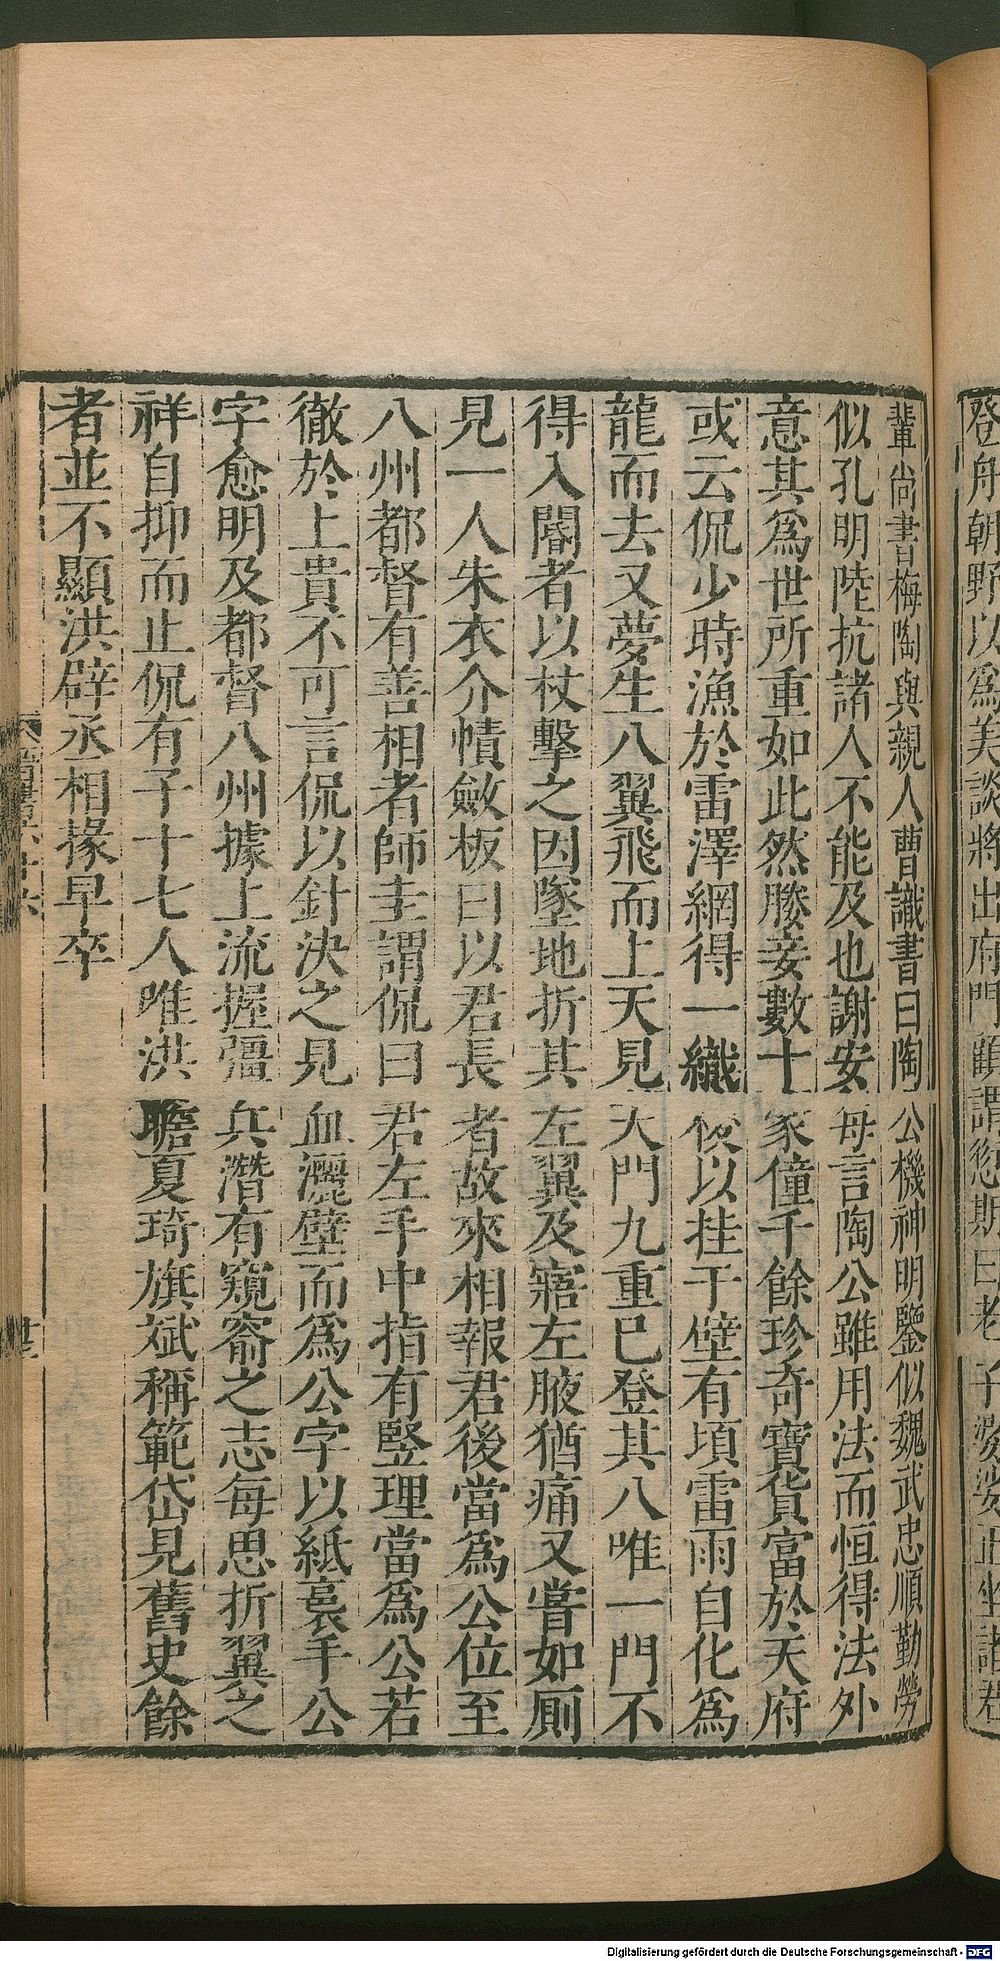 登舟朝野以爲美談將出府門顧謂愆期曰老子婆娑正坐諸君
輩尚書梅陶與親人曹識書曰陶公機神明鑒似魏武忠順勤勞
似孔明陸抗諸人不能及也謝安毋言陶公雖用法而恒得法外
意其爲世所重如此然媵妾數十家僮千餘珍奇寶貨富於天府
或云侃少時漁於雷澤網得一織梭以挂于壁有頃雷雨自化爲
龍而去又夢生八翼飛而上天見天門九重已登其八唯一門不
得入閽者以杖擊之因墜地折其左翼及寤左腋猶痛又嘗如厠
見一人朱衣介幘斂板曰以君長者故來相報君後當爲公位至
八州都督有善相者師圭謂侃曰君左手中指有竪理當爲公若
徹於上貴不可言侃以針決之見血灑壁而爲公字以紙裛手公
字愈明及都督八州據上流握彊兵潛有窺窬之志每思折翼之
祥自抑而止侃有子十七人唯洪瞻夏琦旗斌稱範岱見舊史餘
者並不顯洪辟丞相掾早卒
Digitalisierung gefördert durch die Deutsche Forschungsgemeinschaft - DFG